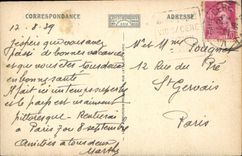 CORRESPONDANCE
ADRESSE
12.8.39
J'espère que vous avez
passé de bonnes vacances
et que vous êtes tous deux
en bonne santé.
Il fait ici un temps superbe
et le pays est vraiment
pittoresque. Rentrerai
à Paris 7 ou 8 septembre
Amitiés à tous deux
Marthe
Mr et Mme Pougnet
12 Rue du Pré
St Gervais
Paris